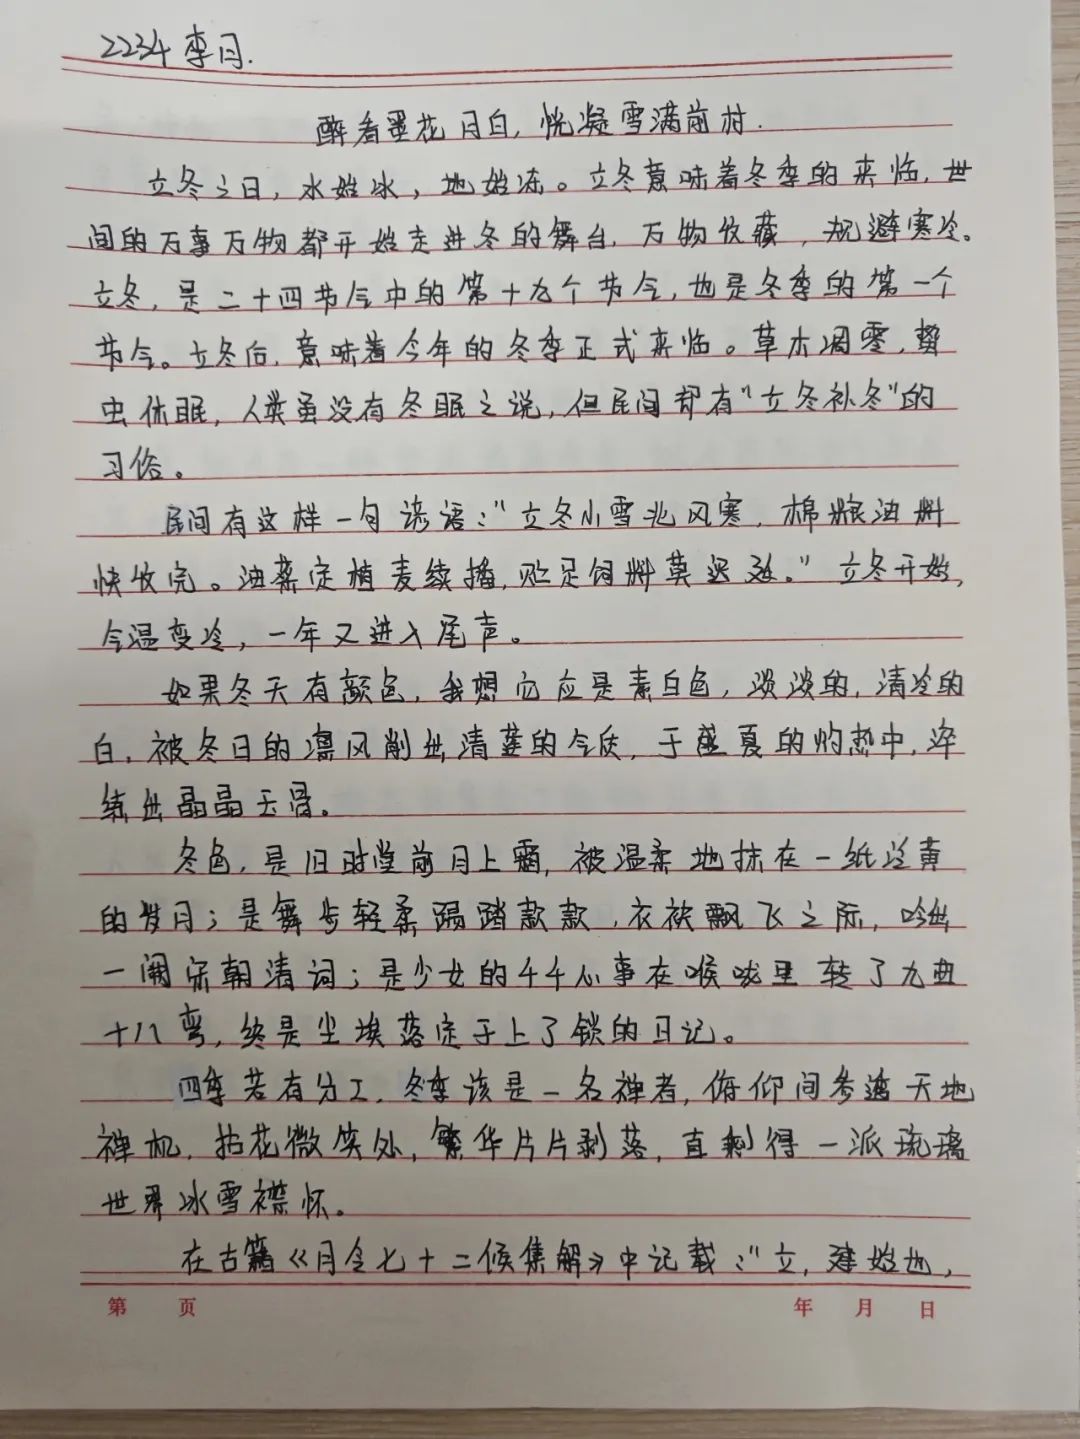 2234 李月.
醉看墨花月白,恍凝雪满前村.
立冬之日,水始冰,地始冻。立冬意味着冬季的来临,世
间的万事万物都开始走进冬的舞台,万物收藏,规避寒冷。
立冬,是二十四节令中的第十九个节令,也是冬季的第一个
节令。立冬后,意味着今年的冬季正式来临。草木凋零,蛰
虫休眠,人类虽没有冬眠之说,但民间却有"立冬补冬"的
习俗。
民间有这样一句谚语:"立冬小雪北风寒,棉粮油料
快收完。油菜定植麦续播,贮足饲料莫迟延。"立冬开始,
气温变冷,一年又进入尾声。
如果冬天有颜色,我想它应是素白色,淡淡的,清冷的
白,被冬日的凛风削出清莲的气质,于盛夏的灼热中,淬
练出晶晶玉骨。
冬色,是旧时堂前月上霜,被温柔地抹在一纸泛黄
的岁月;是舞步轻柔踢踏款款,衣袂飘飞之际,吟出
一阙宋朝清词;是少女的牛牛心事在喉咙里转了九曲
十八弯,终是尘埃落定于上了锁的日记。
四季若有分工,冬季该是一名禅者,俯仰间参透天地
禅机,拈花微笑处,繁华片片剥落,直剩得一派琉璃
世界冰雪襟怀。
在古籍《月令七十二候集解》中记载:"立,建始也,
第 页 年 月 日